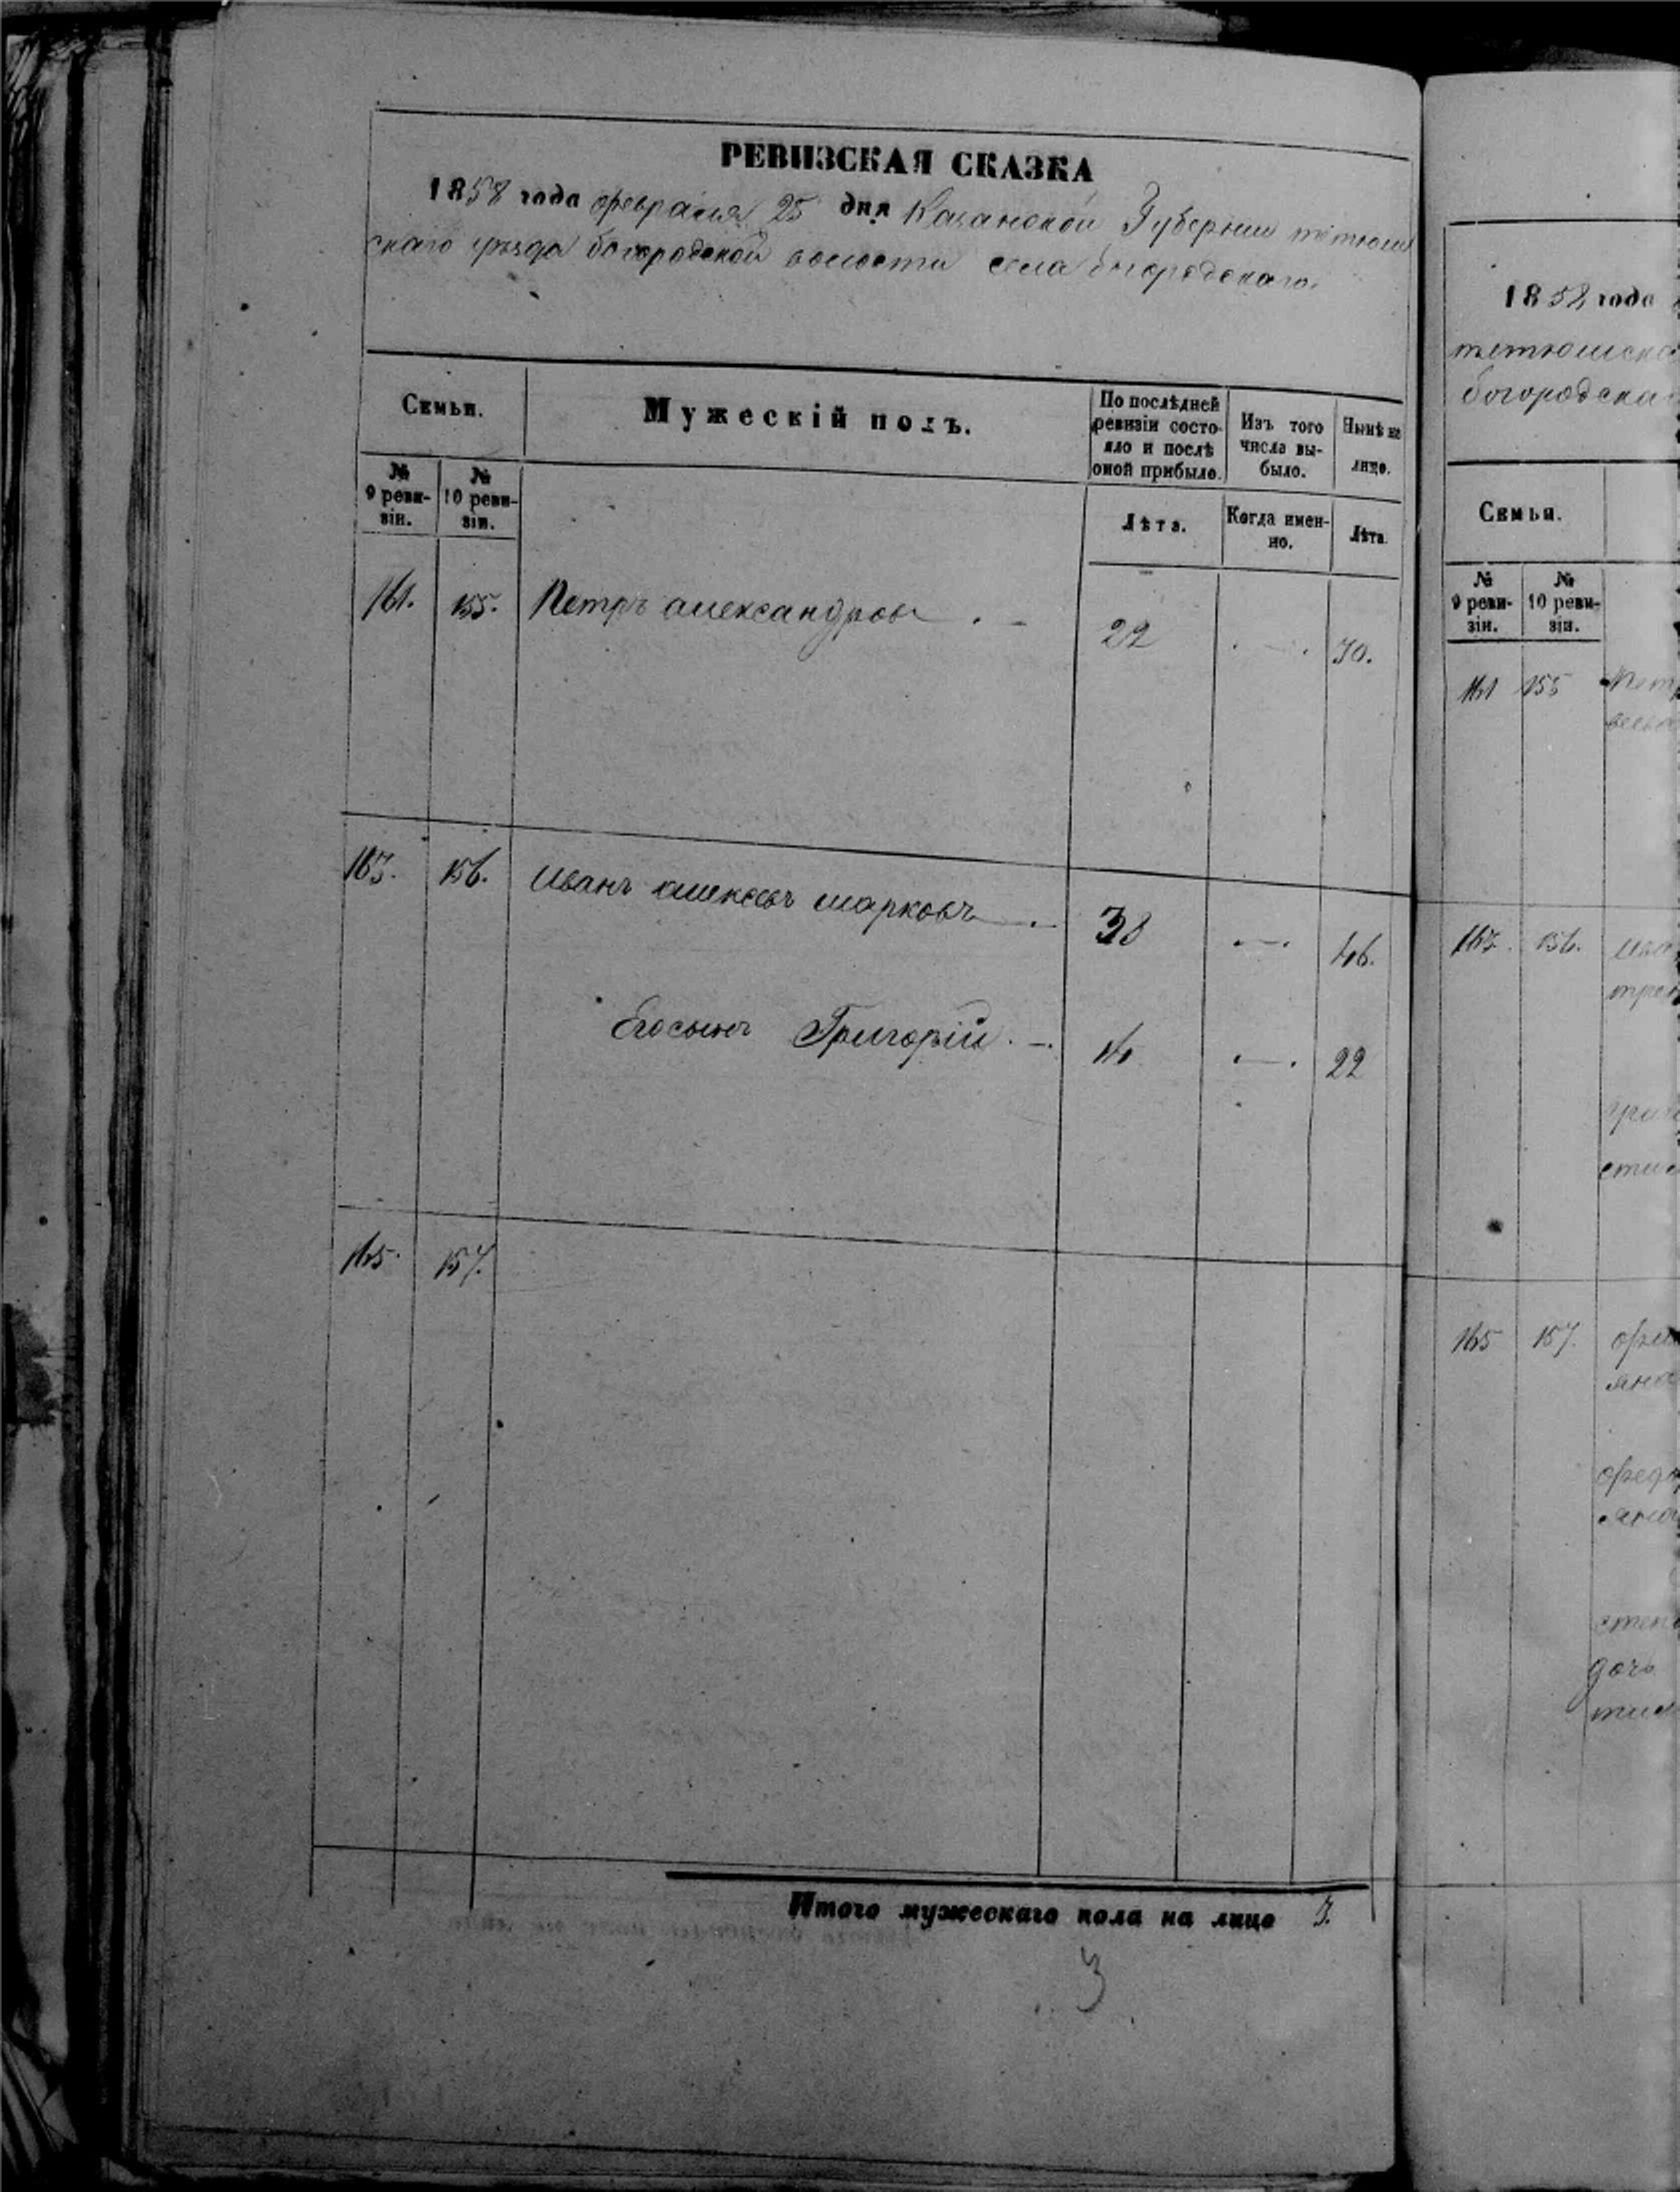 РЕВИЗСКАЯ СКАЗКА
1858 года февраля 25 дня Казанской Губернии тетюш
скаго уѣзда богородской волости села богородскаго.
Семьи.
Мужескій полъ.
По послѣдней ревизіи состо-
яло и послѣ оной прибыло.
Изъ того числа вы-
было.
Нынѣ на лицо.
№ 9 реви-
зіи.
№ 10 реви-
зіи.
Лѣта.
Когда имен-
но.
Лѣта.
161. 155. Петръ александровъ . – 22 . — . 30.
163. 156. Иванъ алексѣевъ марковъ . – 38 . — . 46.
Его сынъ Григорій . –. 14 . — . 22
165. 157.
Итого мужескаго пола на лицо 3.
3
1858 года
тетюшска
богородска
Семьи.
№ 9 реви-
зіи.
№ 10 реви-
зіи.
161 155 Петр
163. 156. ива
165 157.
дочь